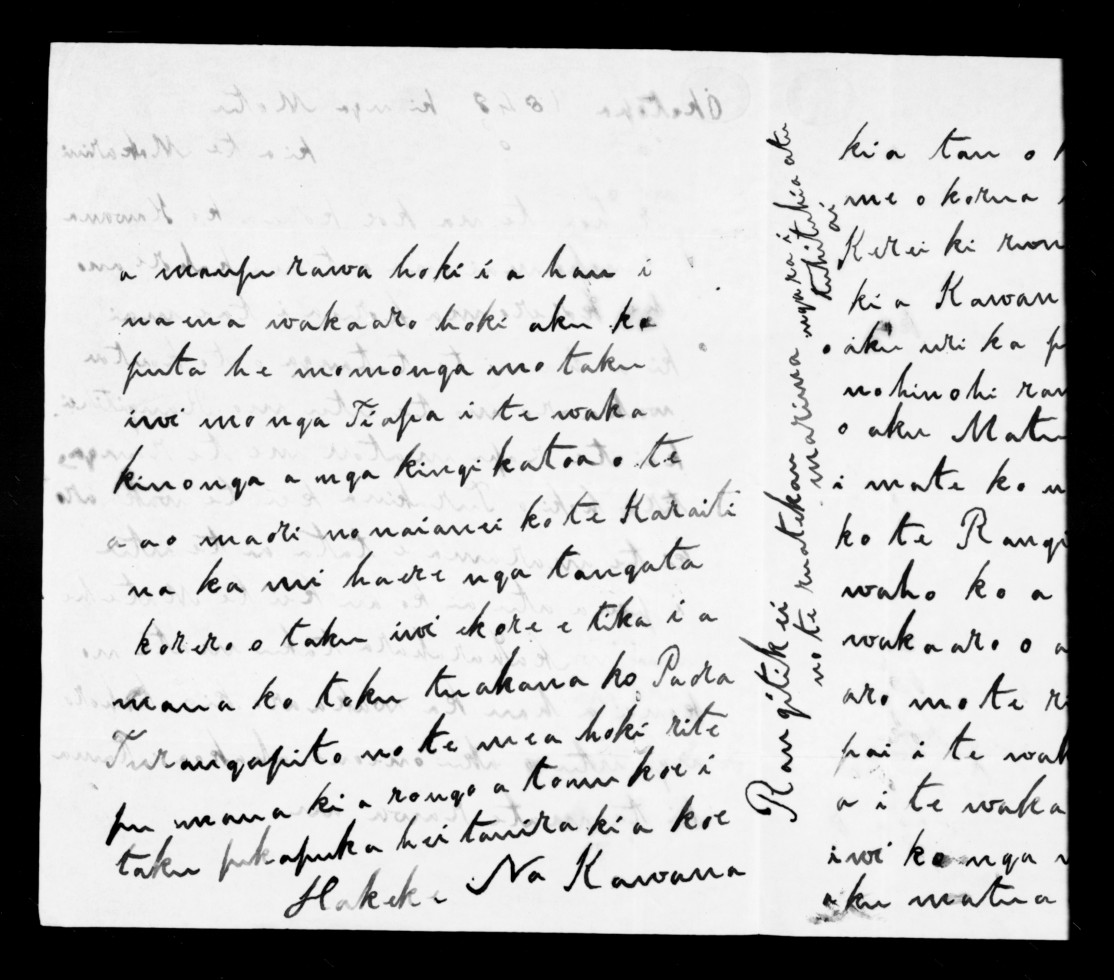 a maupu rawa hoki i a hau i
na ena wakaaro hoki aku ko
puta he momonga mo taku
iwi mo nga Tiapa i te waka
kinonga a nga kingi katoa o te
ao maori no naianei ko te Karaiti
na ka mi haere nga tangata
korero o taku iwi ekore e tika i a
mana ko toku tuakana ko Paora
Turangapito no te mea hoki rite
pu mana ki a rongo a tonu koe i
taku pukapuka hei tauira ki a koe
Na Kawana
Hakeke
Rangitikei
no te matekau marima nga ra i
tuhituhia atu
ai
kia tau o
me o korua
Kerei ki run
ki a Kawan
o aku uri ka p
nohinohi raw
o aku Matu
i mate ko
ko te Rangi
waho ko a
wakaaro o a
aro mo te ri
pai i te wak
a i te waka
iwi ko nga
aku matua